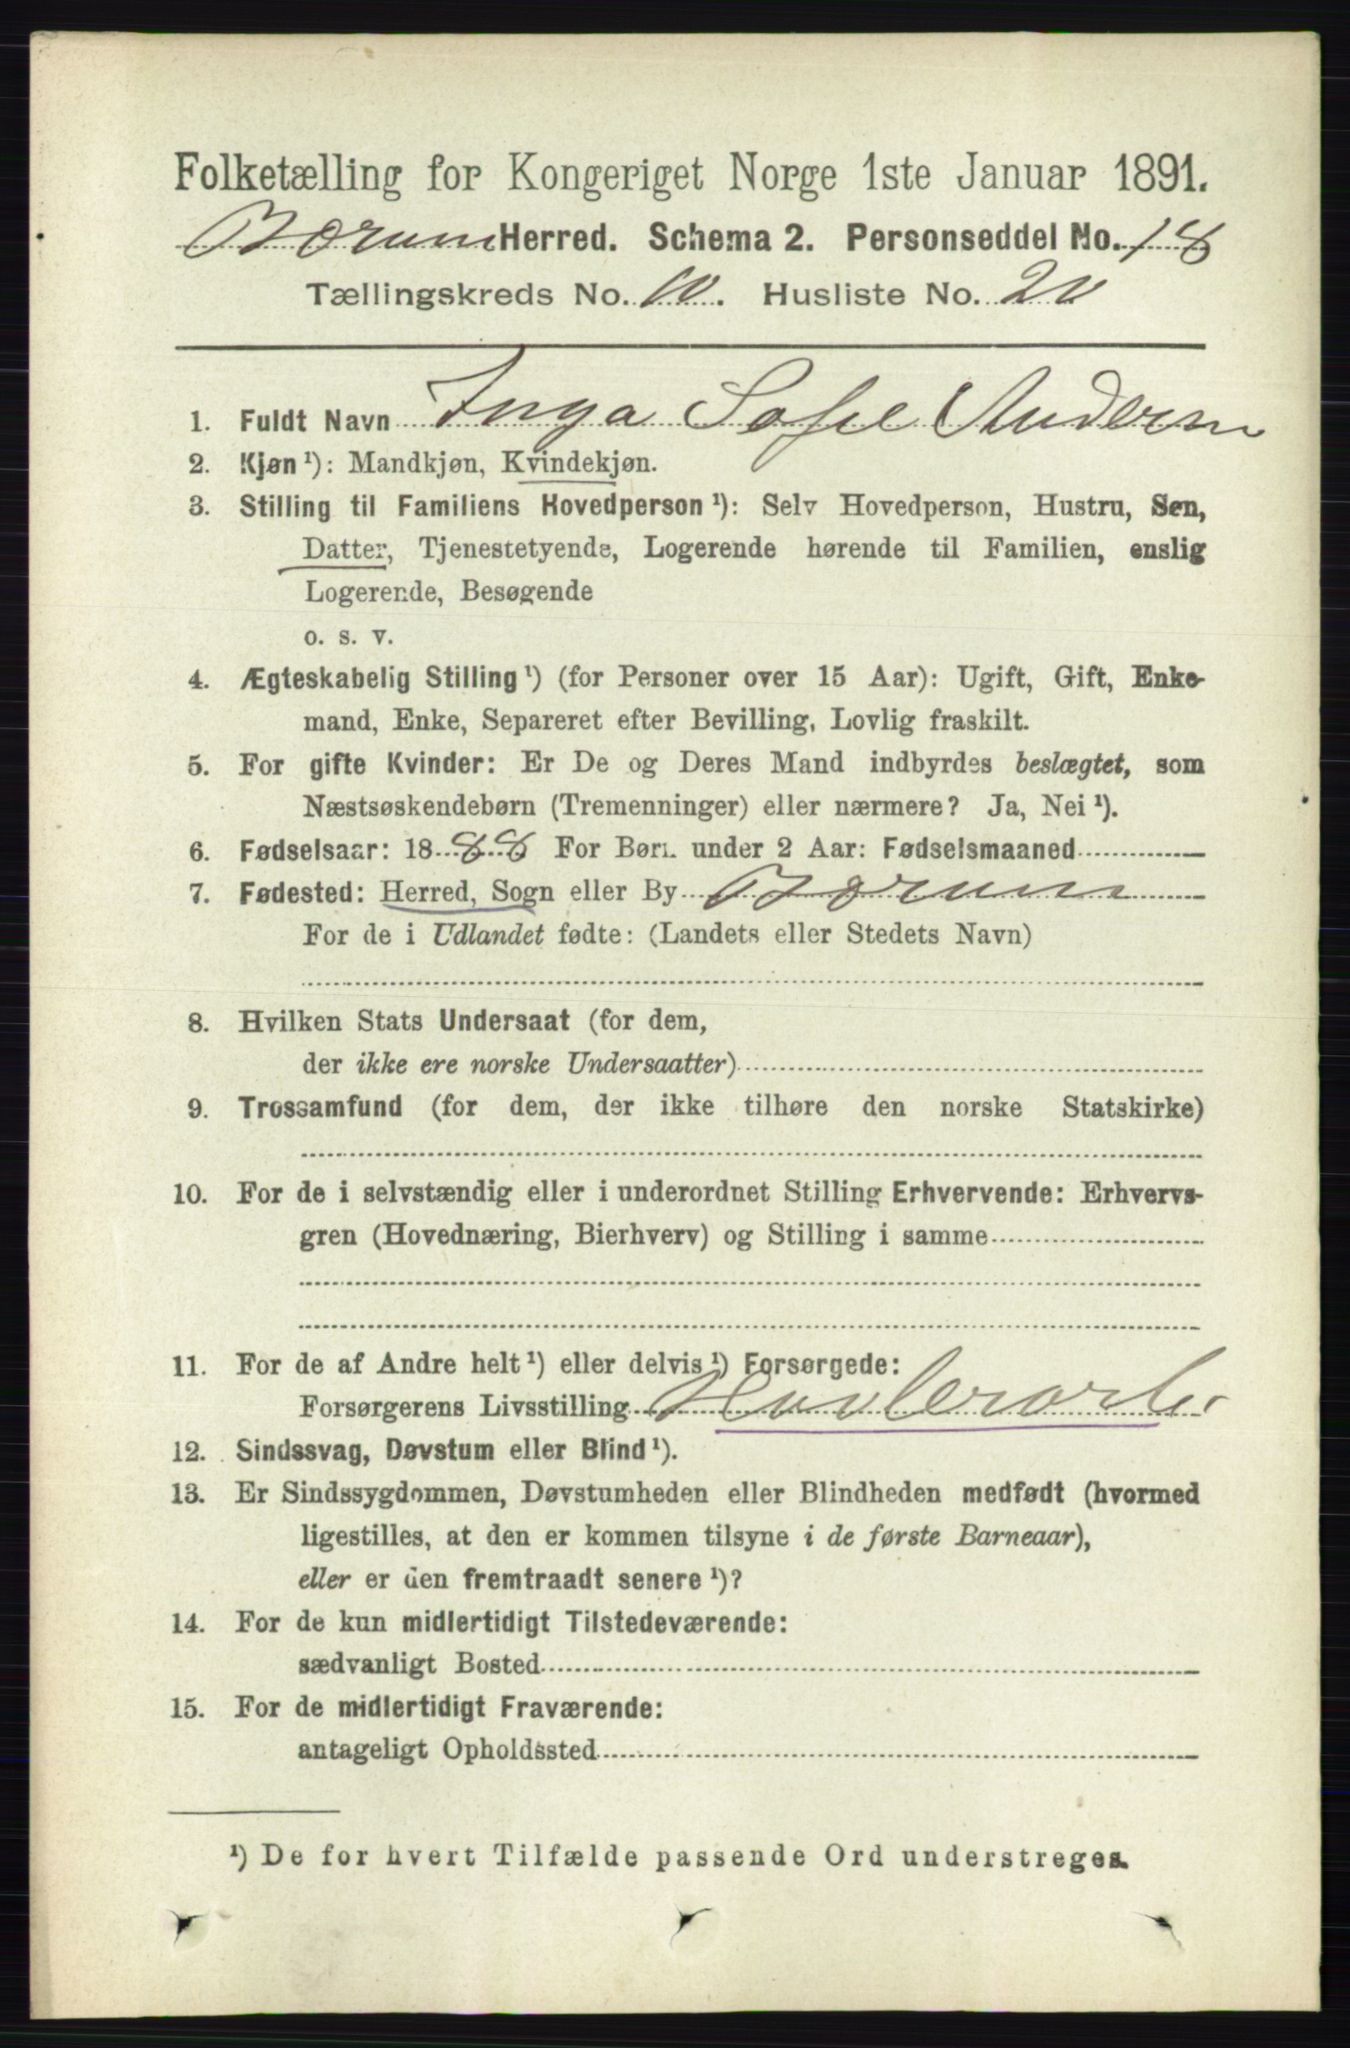 Folketælling for Kongeriget Norge 1ste Januar 1891.
Bærum Herred. Schema 2. Personseddel No. 18
Tællingskreds No. 10. Husliste No. 20
1. Fuldt Navn Inga Sofie Andersen
2. Kjøn ¹): Mandkjøn, Kvindekjøn.
3. Stilling til Familiens Hovedperson ¹): Selv Hovedperson, Hustru, Søn,
Datter, Tjenestetyende, Logerende hørende til Familien, enslig
Logerende, Besøgende
o. s. v.
4. Ægteskabelig Stilling ¹) (for Personer over 15 Aar): Ugift, Gift, Enke-
mand, Enke, Separeret efter Bevilling, Lovlig fraskilt.
5. For gifte Kvinder: Er De og Deres Mand indbyrdes beslægtet, som
Næstsøskendebørn (Tremenninger) eller nærmere? Ja, Nei ¹).
6. Fødselsaar: 1888 For Børn under 2 Aar: Fødselsmaaned
7. Fødested: Herred, Sogn eller By Bærum
For de i Udlandet fødte: (Landets eller Stedets Navn)
8. Hvilken Stats Undersaat (for dem,
der ikke ere norske Undersaatter)
9. Trossamfund (for dem, der ikke tilhøre den norske Statskirke)
10. For de i selvstændig eller i underordnet Stilling Erhvervende: Erhvervs-
gren (Hovednæring, Bierhverv) og Stilling i samme
11. For de af Andre helt ¹) eller delvis ¹) Forsørgede:
Forsørgerens Livsstilling
12. Sindssvag, Døvstum eller Blind ¹).
13. Er Sindssygdommen, Døvstumheden eller Blindheden medfødt (hvormed
ligestilles, at den er kommen tilsyne i de første Barneaar),
eller er den fremtraadt senere ¹)?
14. For de kun midlertidigt Tilstedeværende:
sædvanligt Bosted
15. For de midlertidigt Fraværende:
antageligt Opholdssted
¹) De for hvert Tilfælde passende Ord understreges.